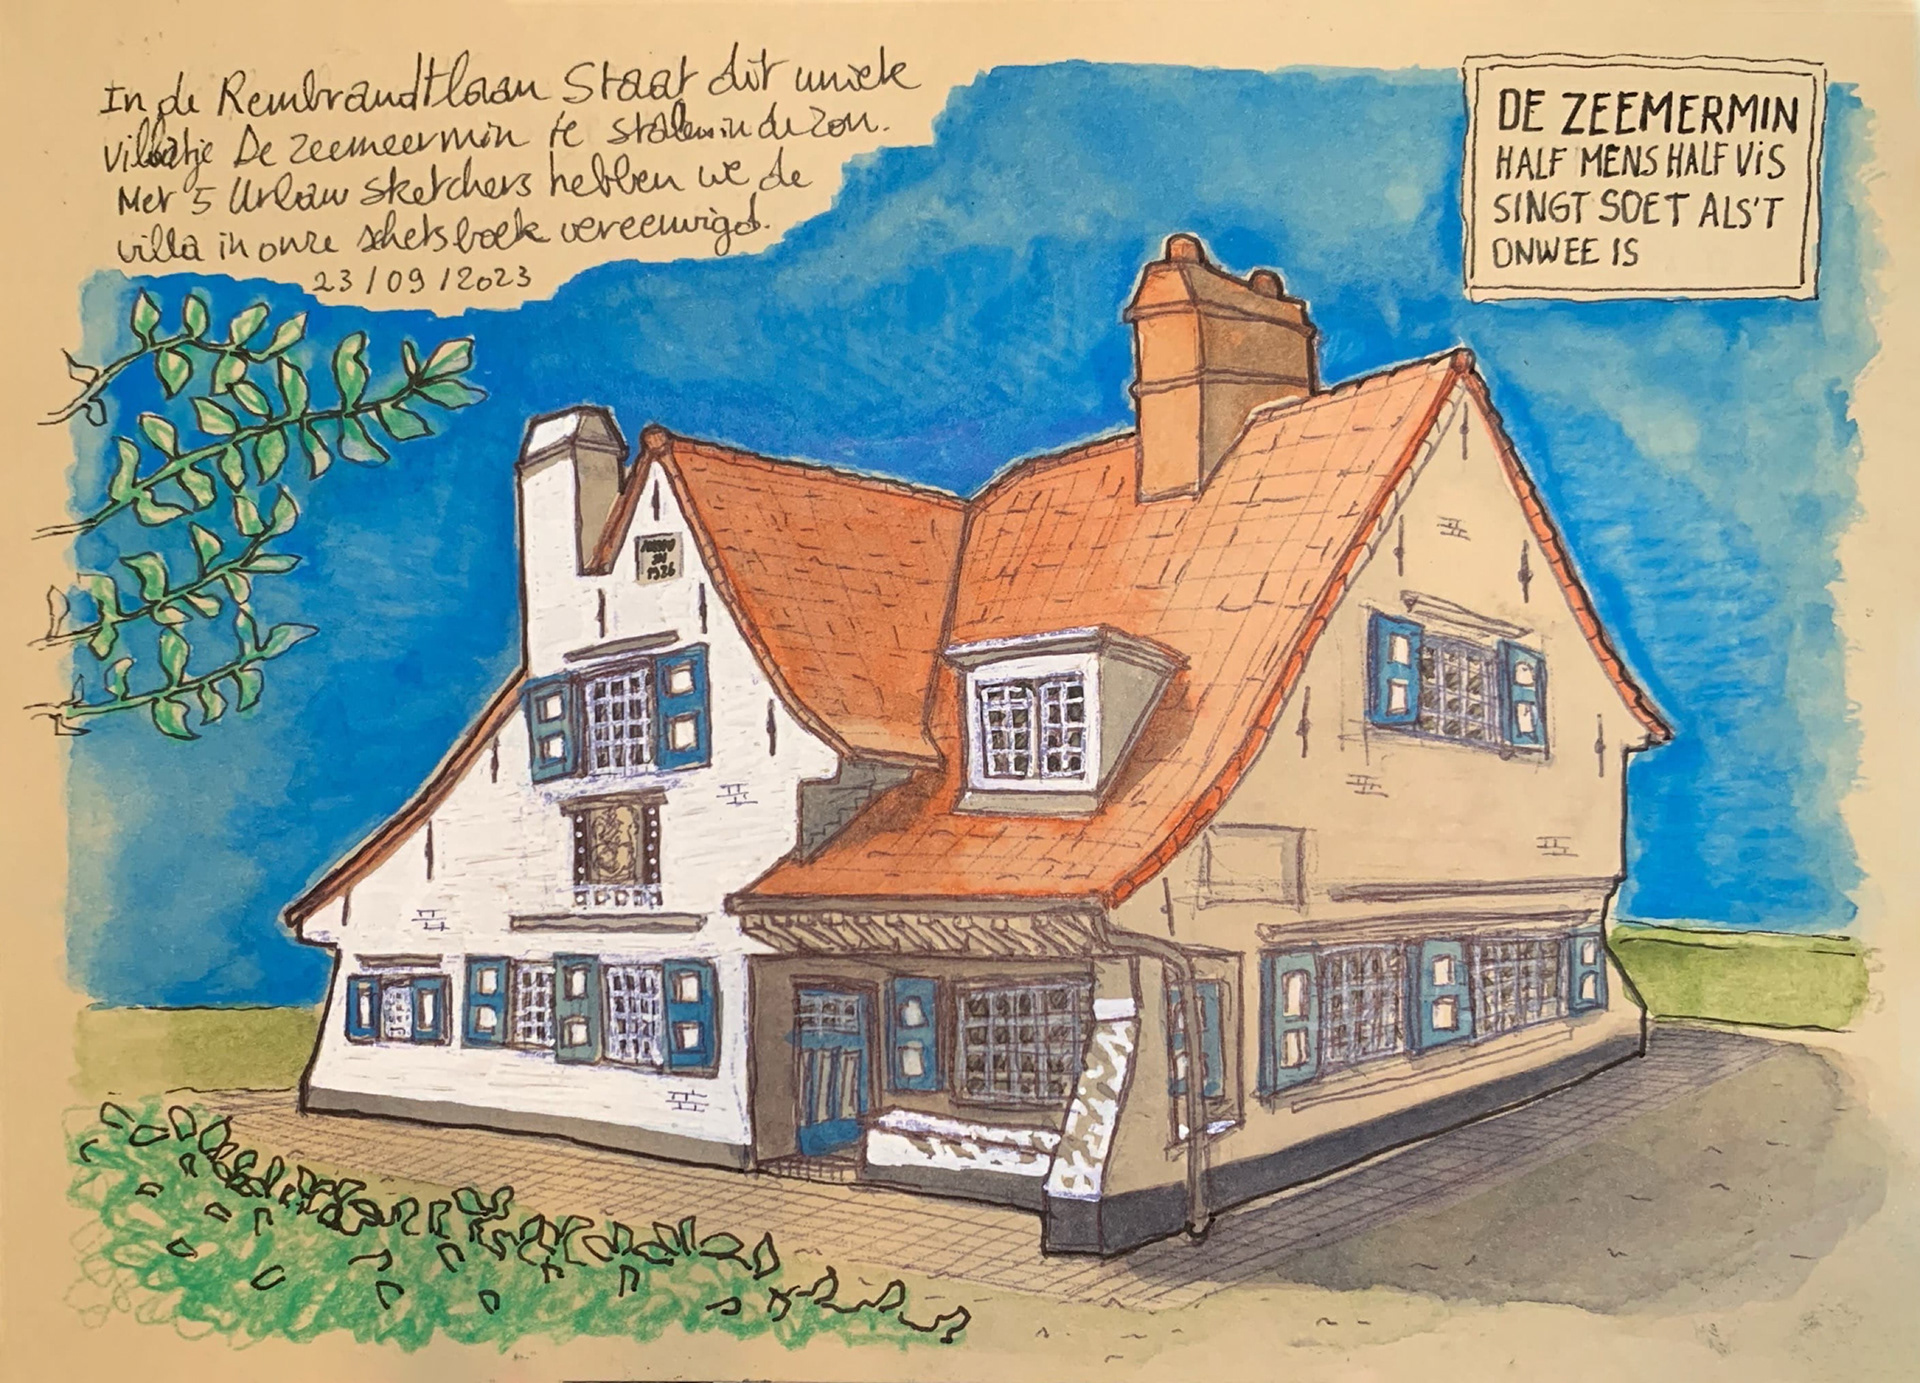 In de Rembrandtlaan staat dit uniek
villatje De zeemeermin te stralen in de zon.
Met 5 Urban sketchers hebben we de
villa in onze schetsboek vereeuwigd.
23/09/2023
DE ZEEMERMIN
HALF MENS HALF VIS
SINGT SOET ALS'T
ONWEE IS
1926